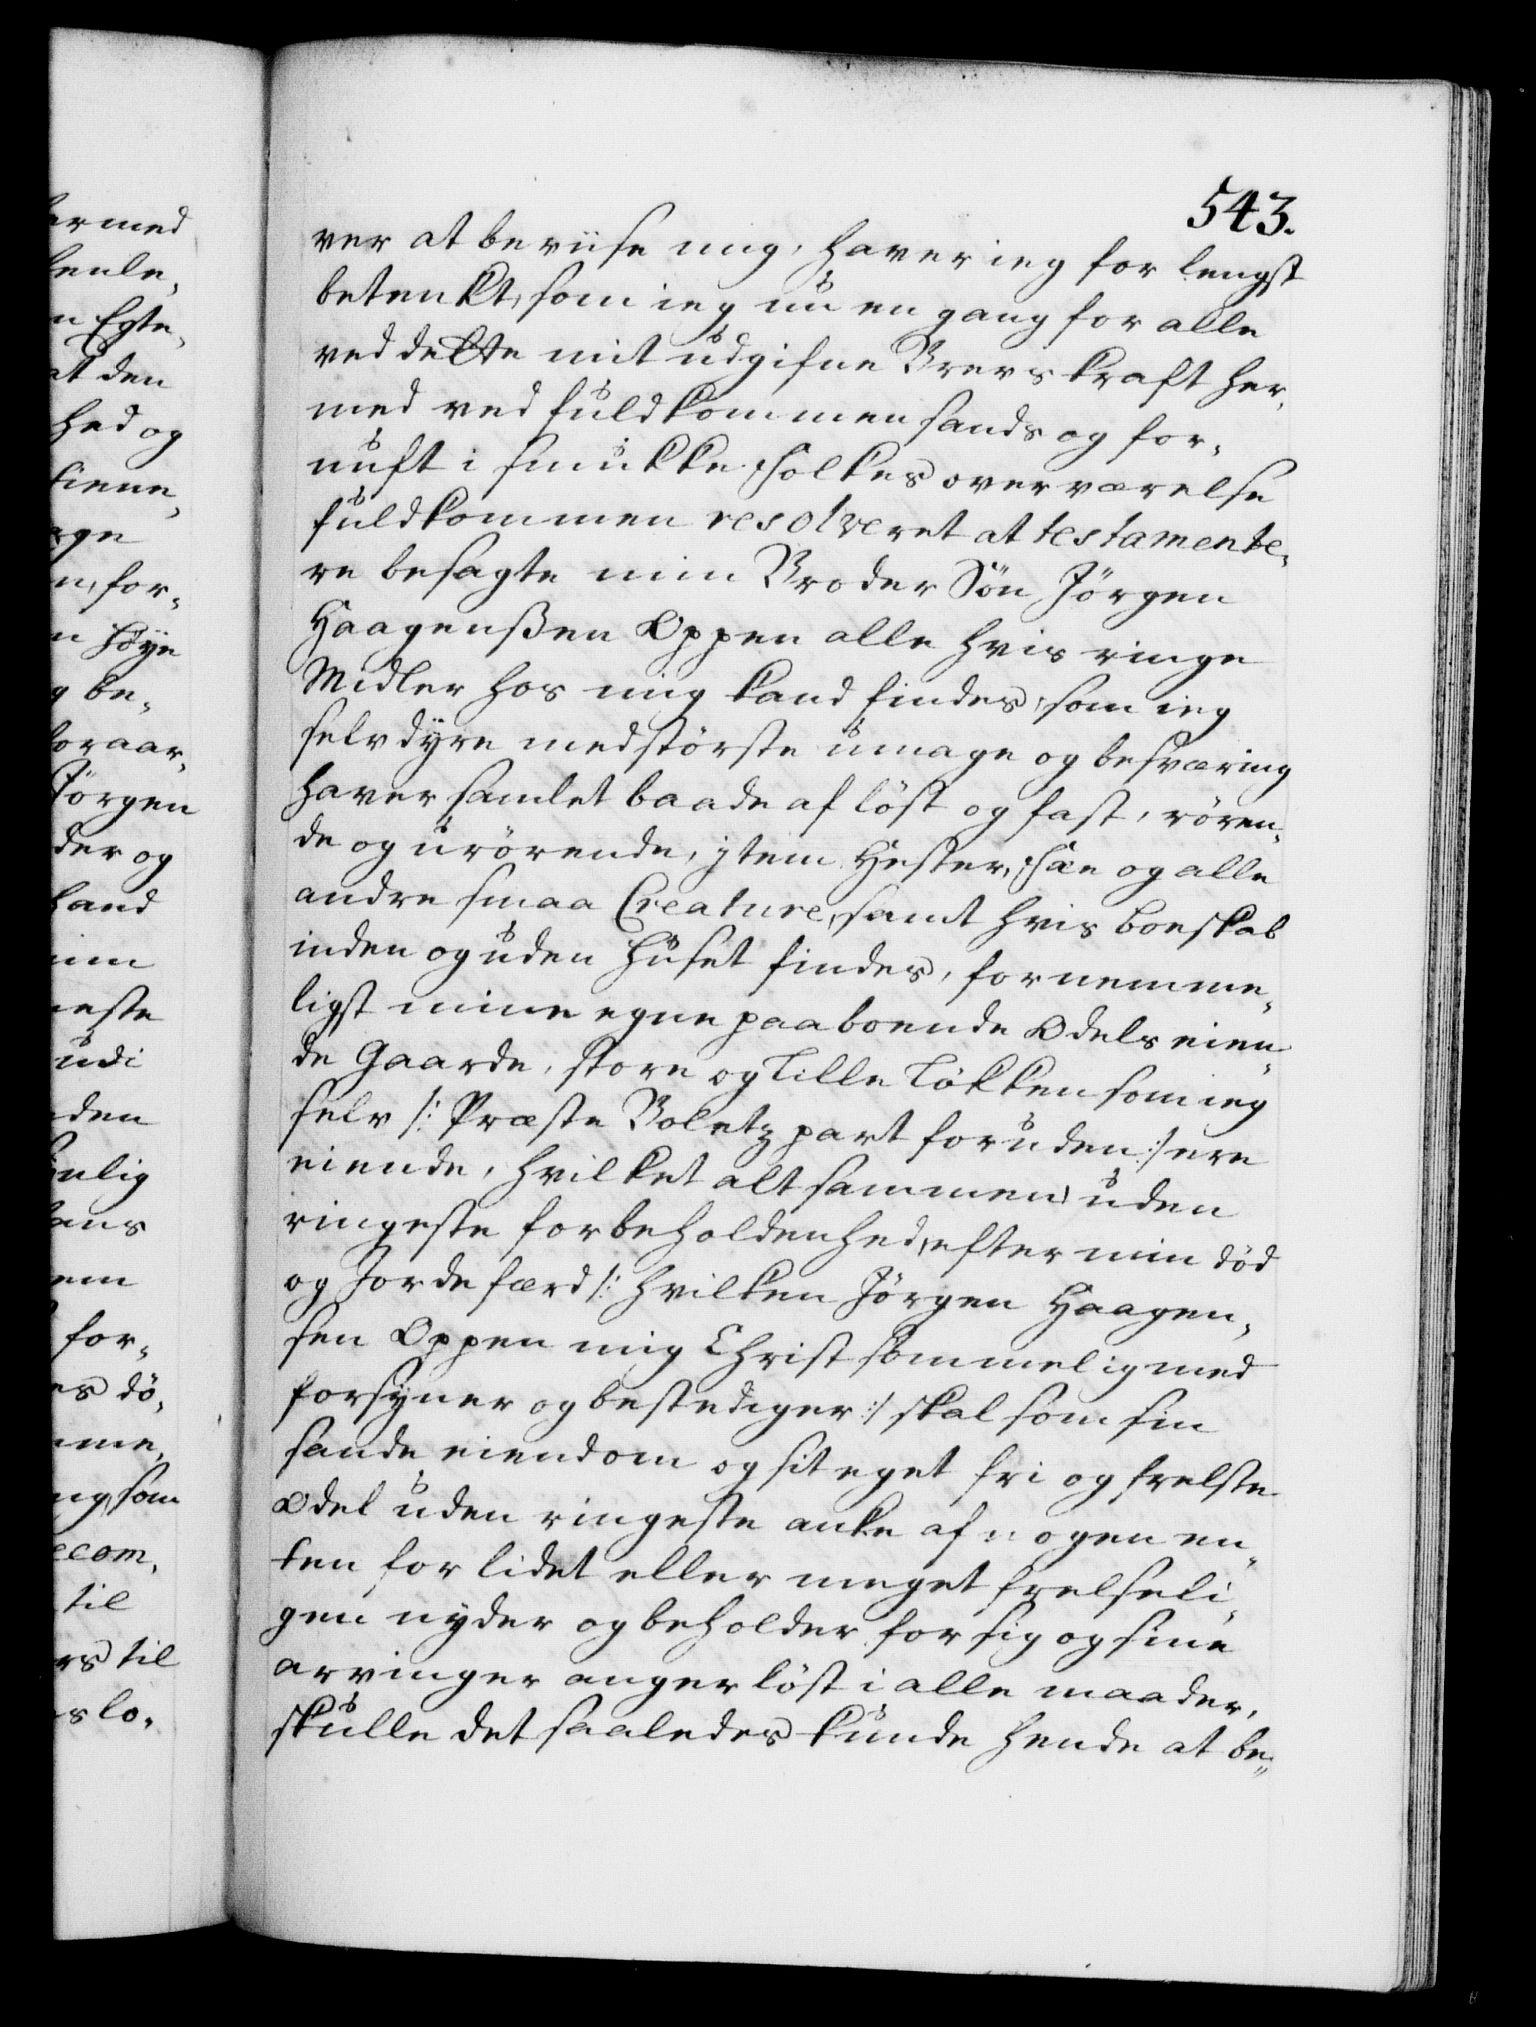 543.
ver at beviise mig, haver ieg for lengst
betenkt, som ieg nu en gang for alle
ved dette mit udgifne Brevs kraft her,
med ved fuldkommen sands og for,
nuft i smukke Folkes overværelse
fuldkommen resolveret at testamente,
re besagte min Broder Søn Jörgen
Haagenßen Oppen alle hvis ringe
Midler hos mig kand findes, som ieg
selv dyre med störste umage og besværing
haver samlet baade af löst og fast, rören,
de og urörende, jtem Hester, Fæe og alle
andre smaa Creature, samt hvis boeskab
inden og uden Huset findes, fornemme,
ligst mine egne paaboende Odels eien,
de Gaarde, store og Lille Lökken som ieg
selv /: Præste Boletz part foruden :/ ere
eiende, hvilket alt sammen, uden
ringeste forbeholdenhed, efter min död
og Jordefærd /: hvilken Jörgen Haagen,
sen Oppen mig Christsömmelig med
forsyner og bestediger :/ skal som sin
sande eiendom og sit eget fri og frelste
Odel uden ringeste anke af nogen en,
ten for lidet eller meget frelseli,
gen nyder og beholder for sig og sine
arvinger angerlöst i alle maader,
skulle det saaledes kunde hende at be,,
ermed
at den
hed og
n, for,
g be,
Jörgen
der og
haand
udi
for,
es dö,
ng, som
til
rs til